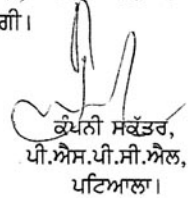 ਗੀ।
ਕੰਪਨੀ ਸਕੱਤਰ,
ਪੀ.ਐਸ.ਪੀ.ਸੀ.ਐਲ,
ਪਟਿਆਲਾ।